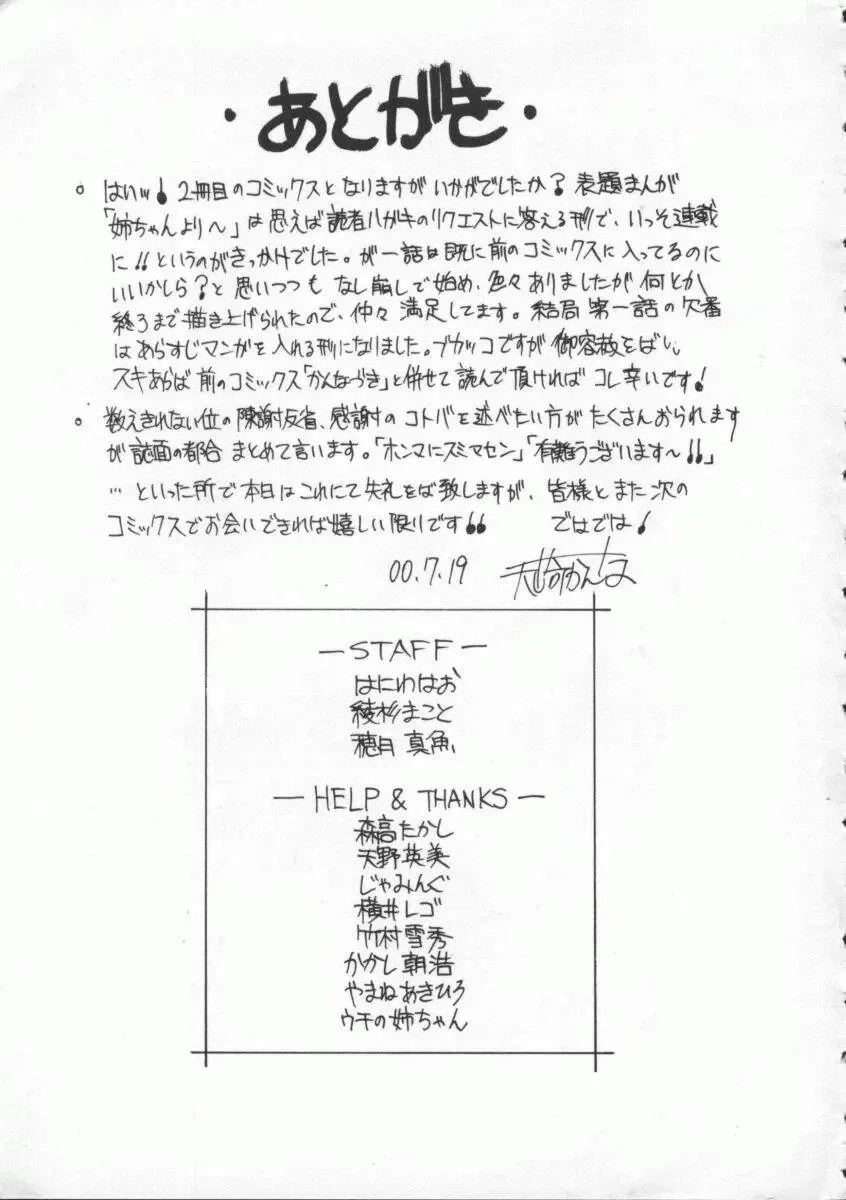 ・あとがき・
○ はいッ! 2冊目のコミックスとなりますがいかがでしたか? 表題まんが
「姉ちゃんより〜」は思えば読者ハガキのリクエストに答える形で、いっそ連載
に!!というのがきっかけでした。が一話は既に前のコミックスに入ってるのに
いいかしら?と思いつつも なし崩しで始め、色々ありましたが何とか
終了まで描き上げられたので、仲々満足してます。結局 第一話の欠番
はあらすじマンガを入れる形になりました。ブカッコですが御容赦をばし。
スキあらば前のコミックス「かんなづき」と併せて読んで頂ければコレ幸いです!
○ 数えきれない位の陳謝反省、感謝のコトバを述べたい方がたくさんおられます
が誌面の都合 まとめて言います。「ホンマにスミマセン」「有難うございます〜!!」
…といった所で本日はこれにて失礼をば致しますが、皆様とまた次の
コミックスでお会いできれば嬉しい限りです!! ではでは!
00.7.19
—STAFF—
はにわはお
綾杉まこと
穂月真魚
—HELP & THANKS—
森高たかし
天野英美
じゃみんぐ
横井レゴ
竹村雪秀
かかし朝浩
やまねあきひろ
ウチの姉ちゃん